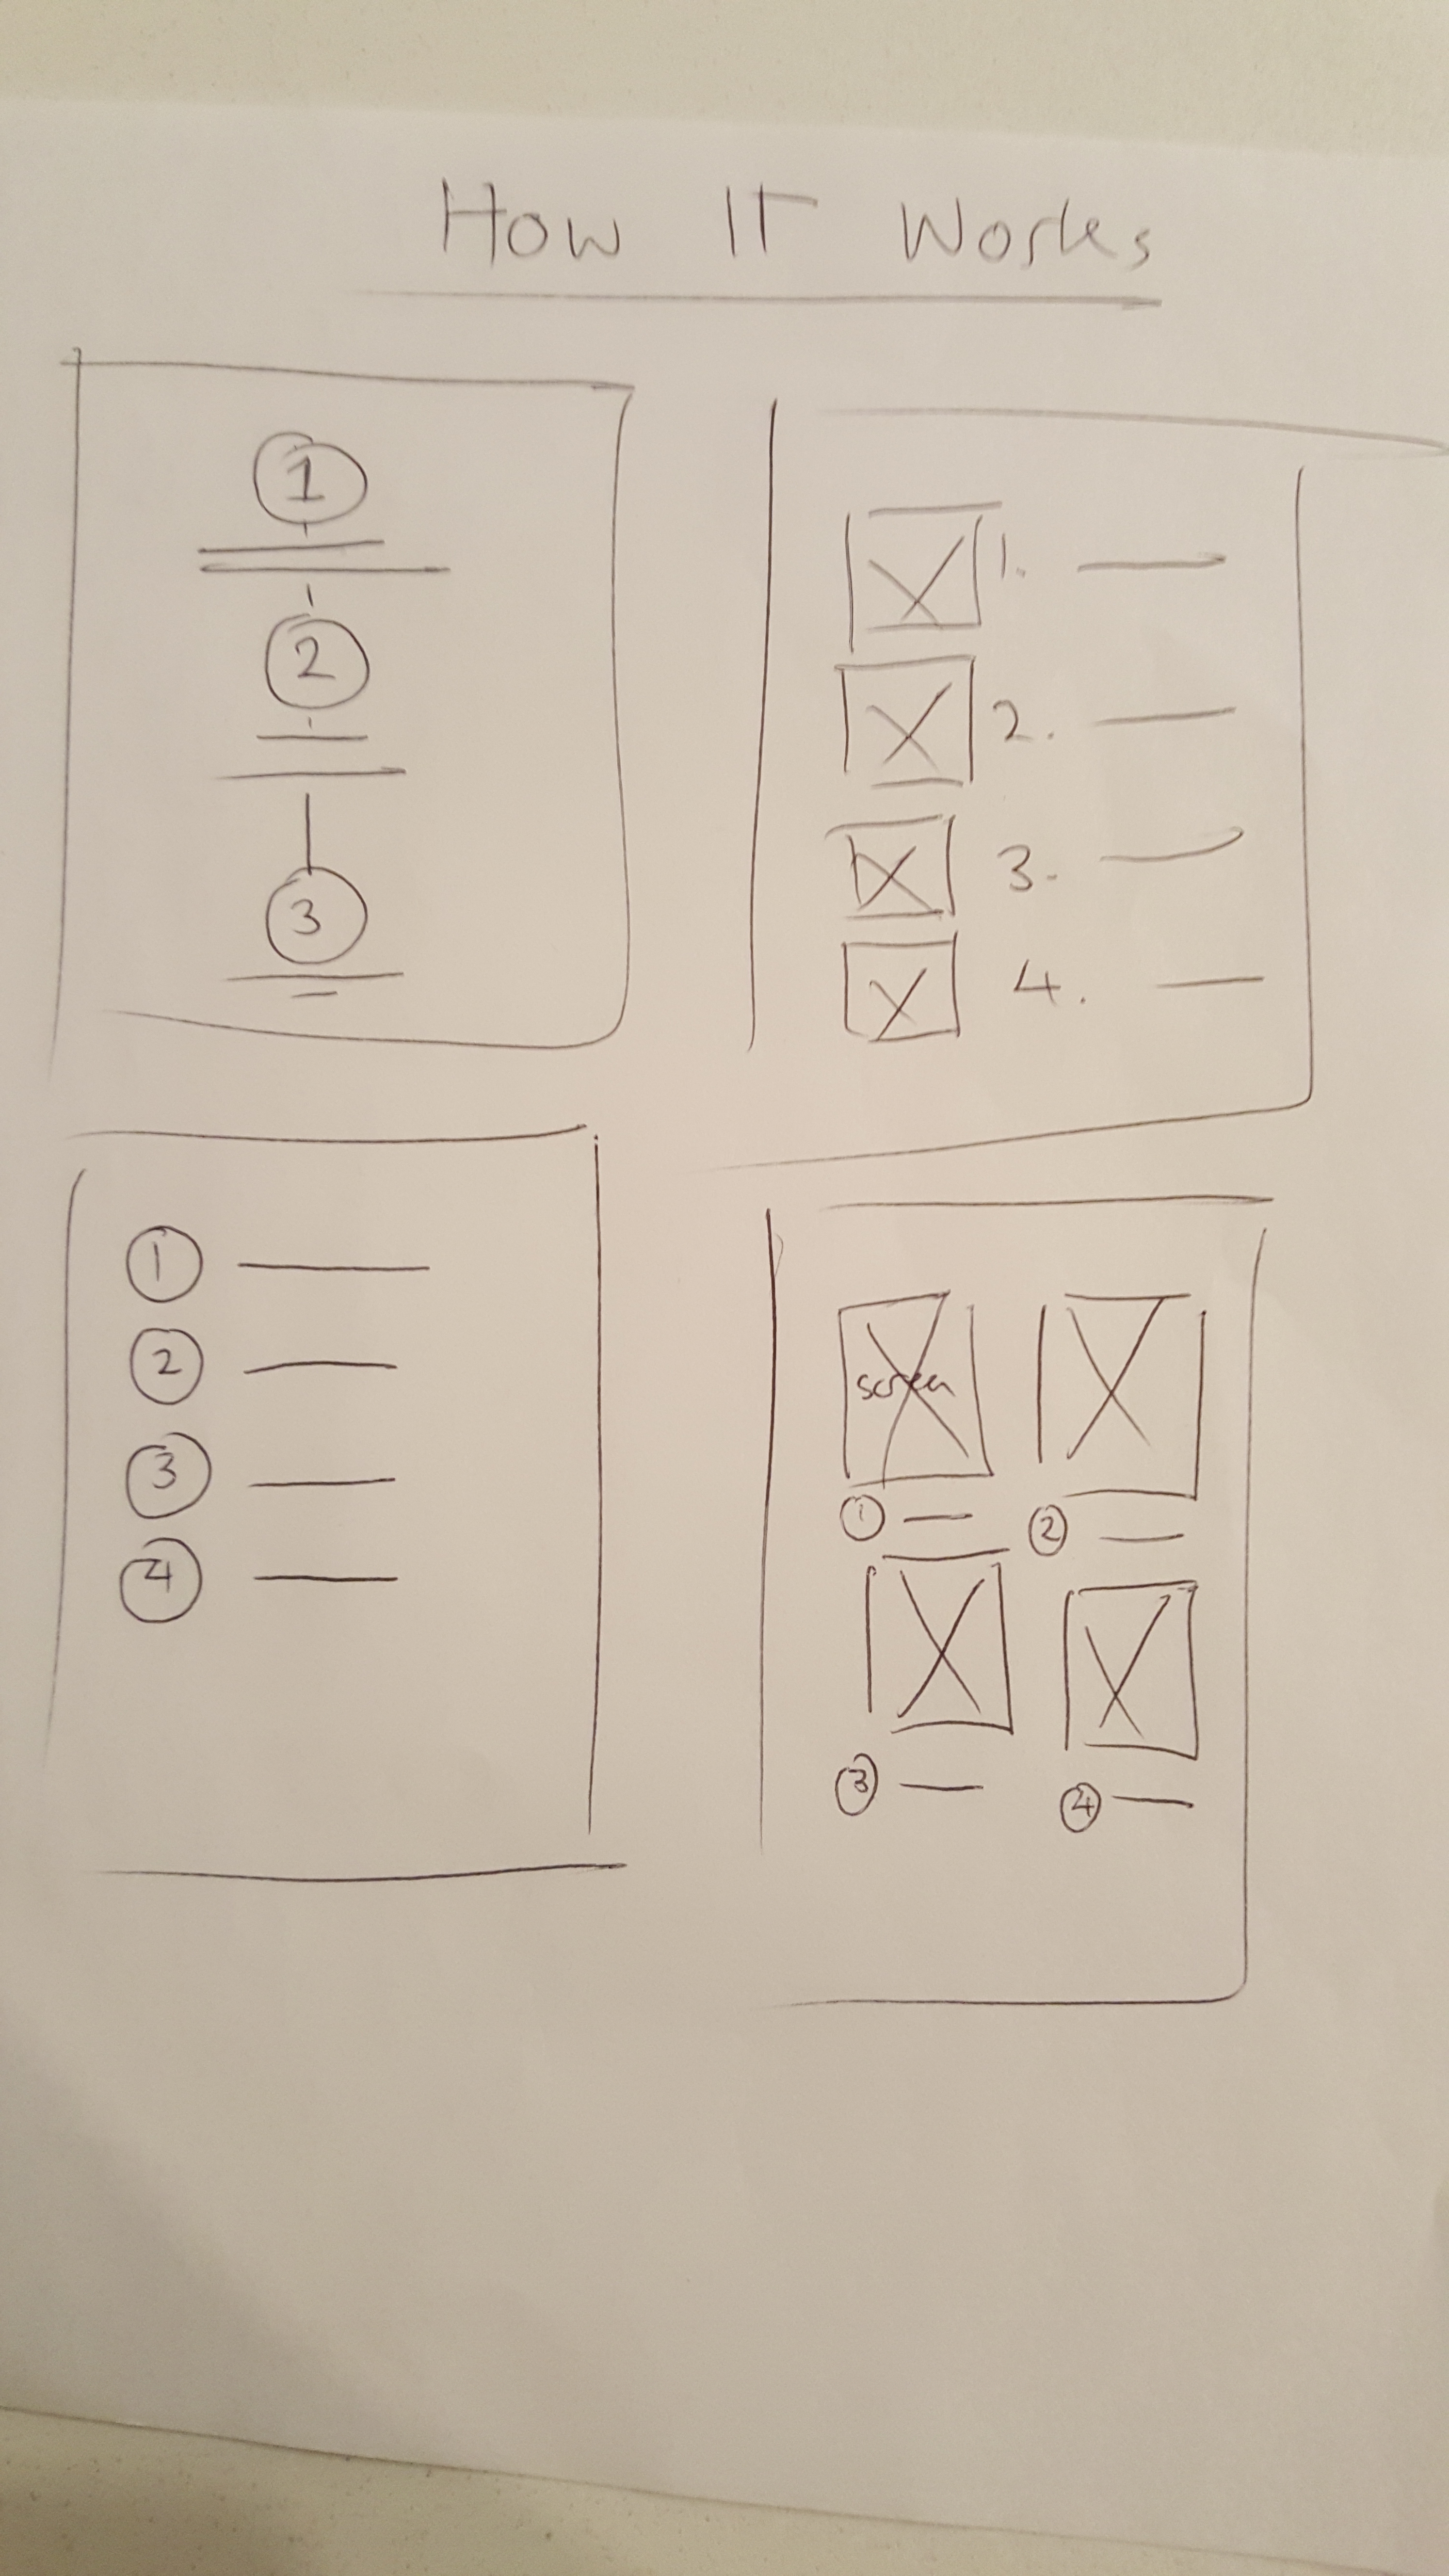 How IT Works
1
2
3
1.
2.
3.
4.
1
2
3
4
screen
1
2
3
4